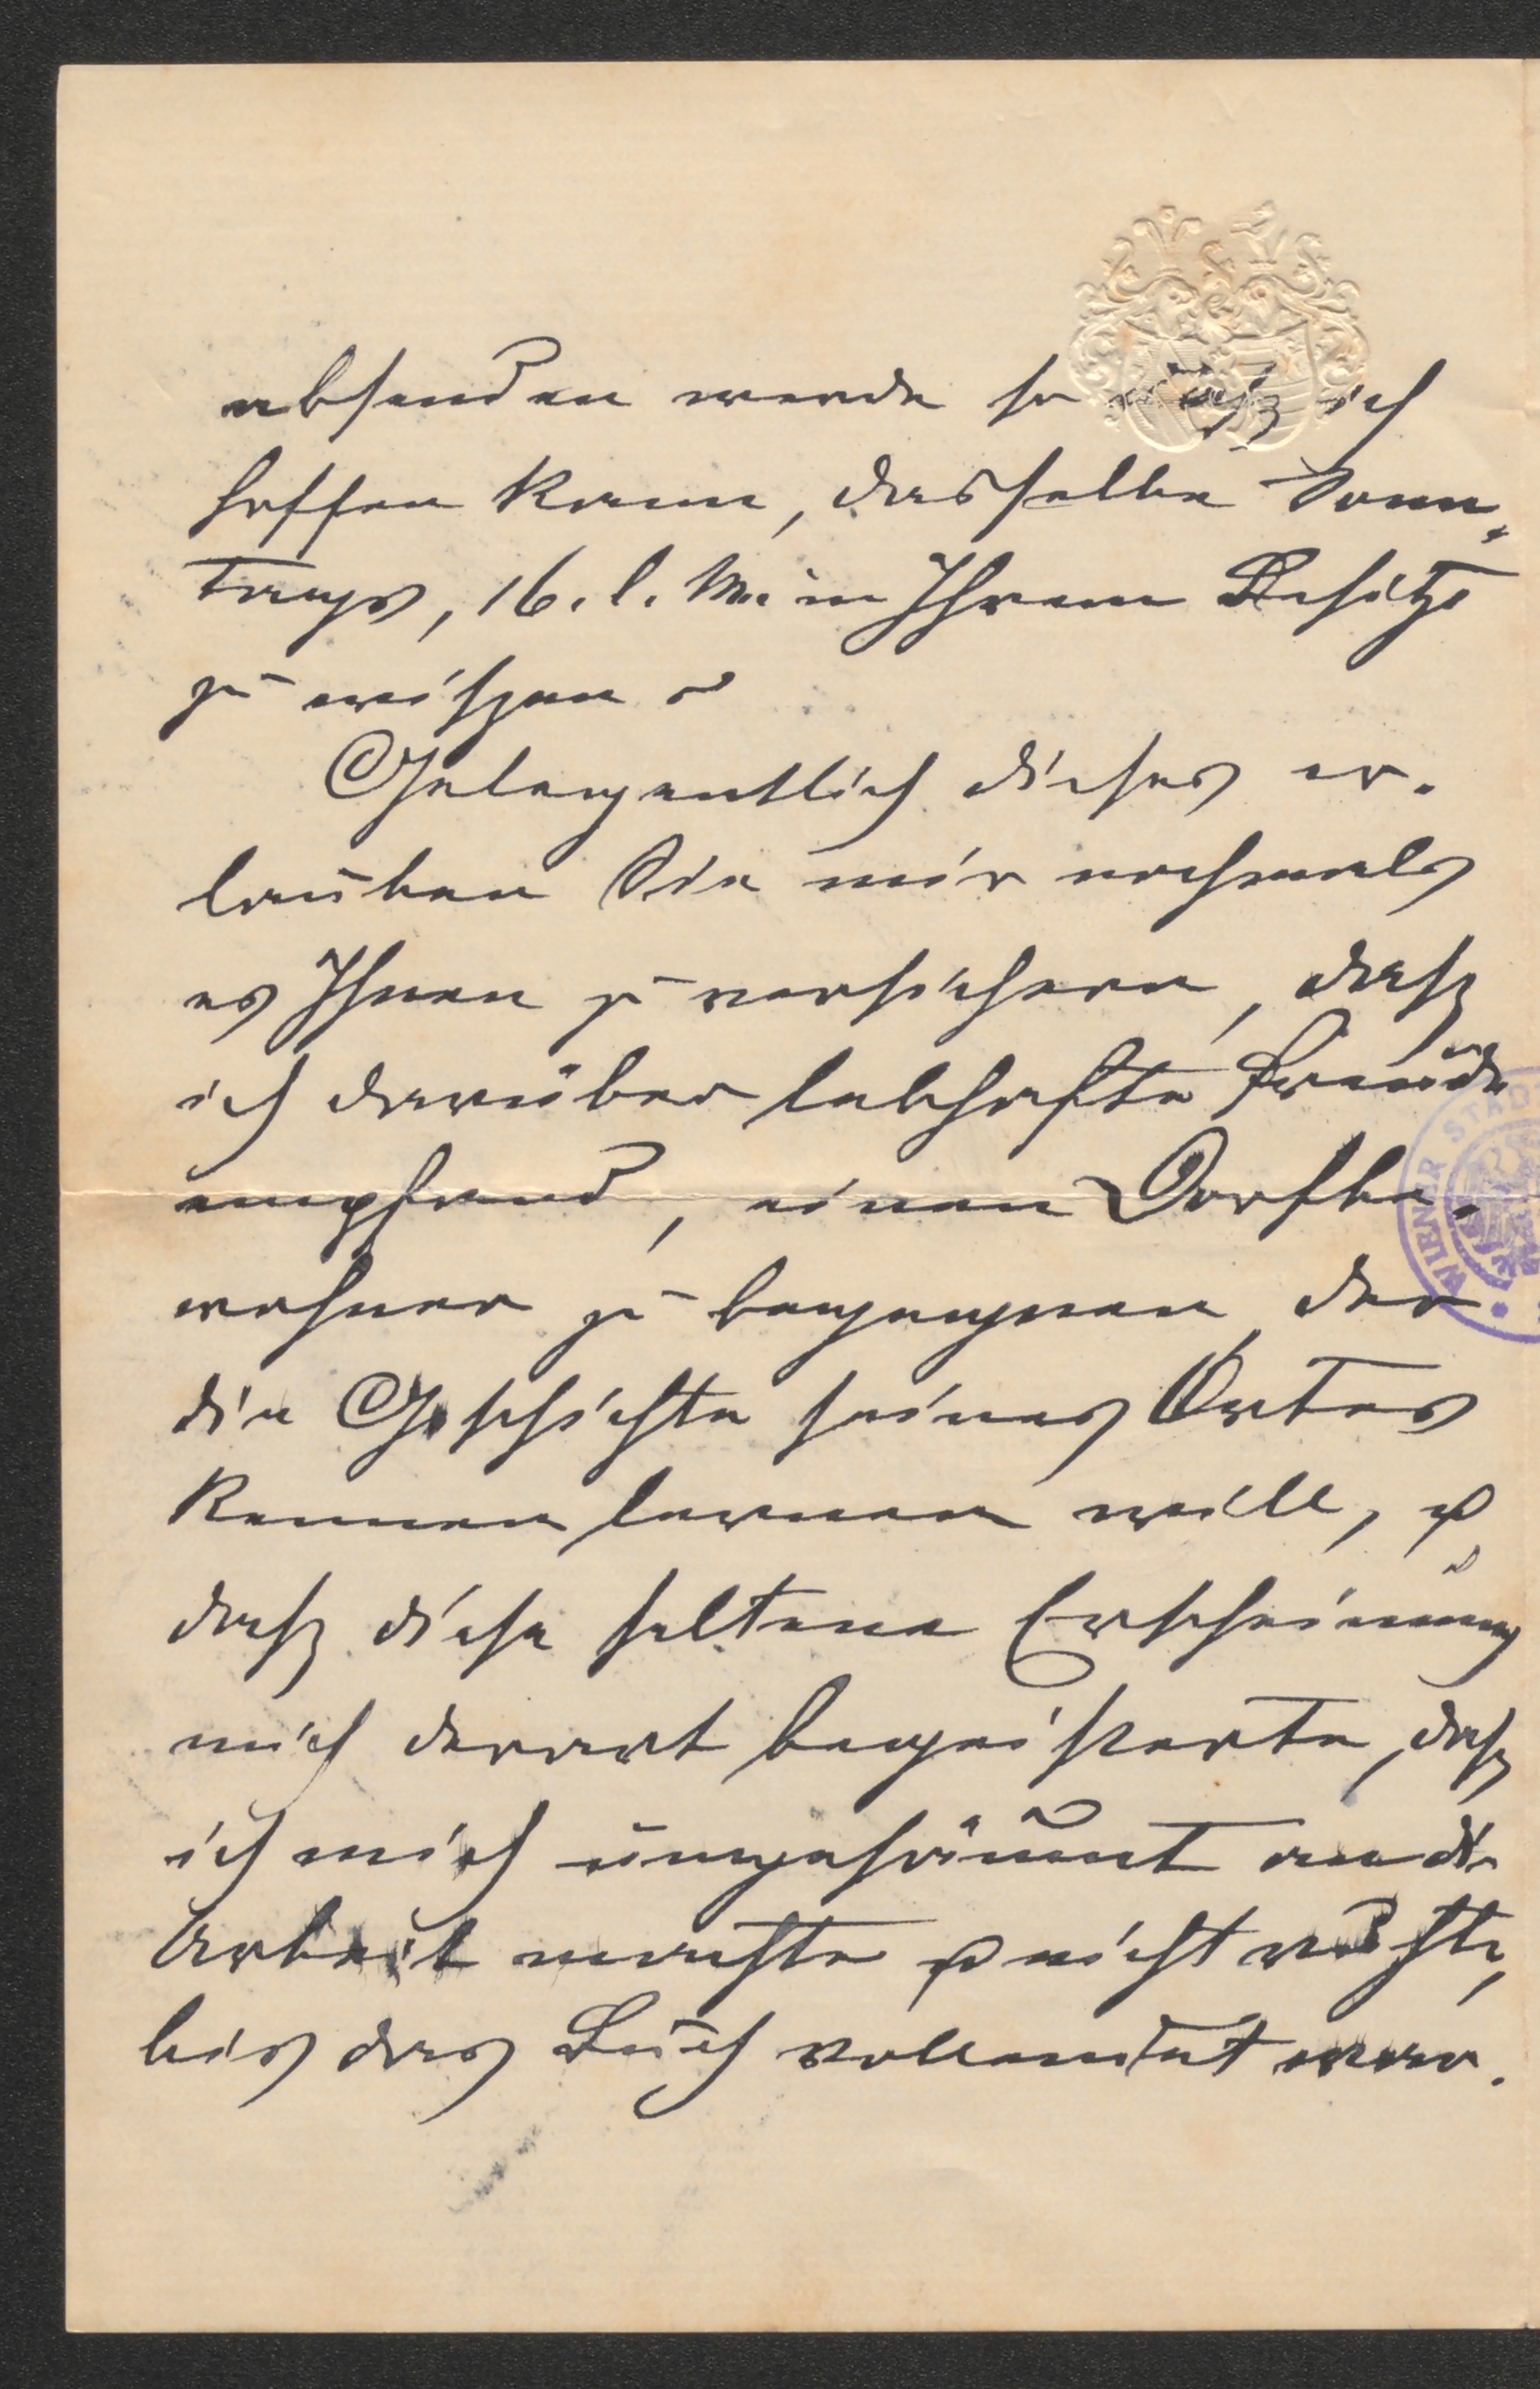 absenden werde so daß ich
hoffen kann, dasselbe Sonn-
tags, 16. l. M. in Ihrem Besitze
zu wißen.
Gelegentlich dieses er-
lauben Sie mir nochmals
es Ihnen zu versichern, daß
ich darüber lebhafte Freude
empfand, einen Dorfbe-
wohner zu begegnen, der
die Geschichte seines Ortes
kennen lernen will, u
daß diese seltene Erscheinung
mich derart begeisterte, daß
ich mich ungesäumt an die
Arbeit machte u nicht rastete,
bis das Buch vollendet war.
WIENER STAD